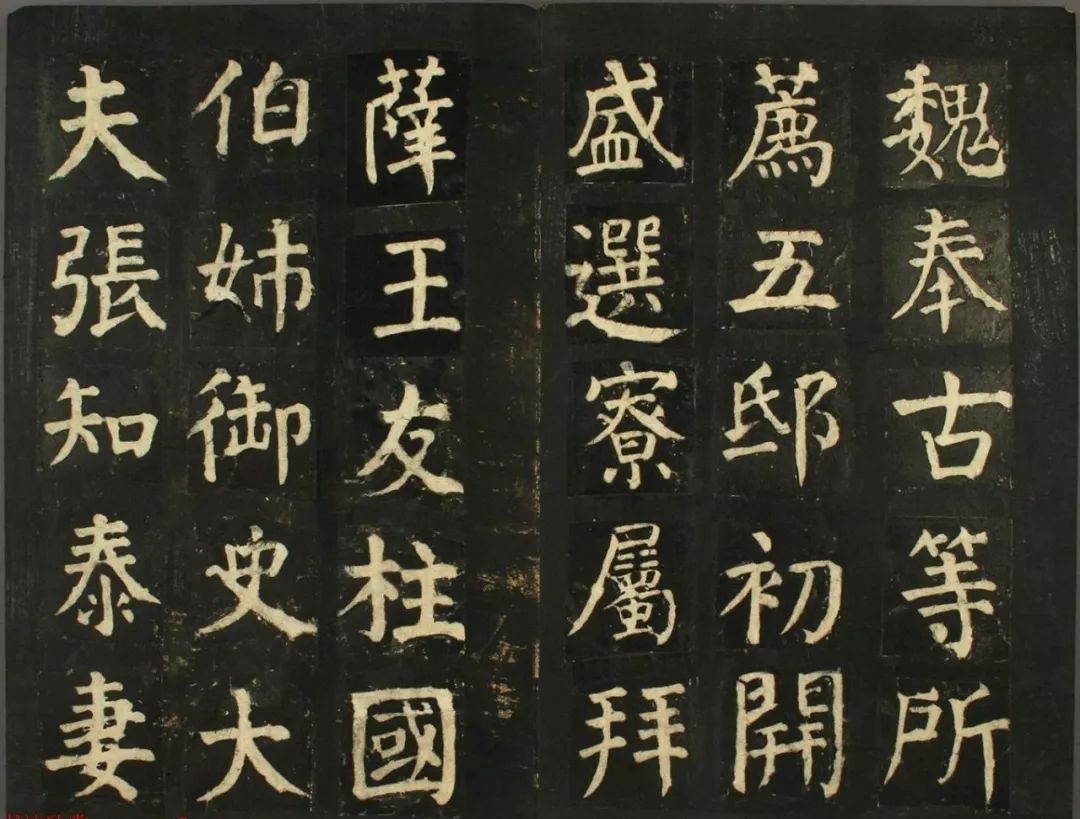 魏奉古等所
薦五邸初開
盛選寮屬拜
薛王友柱國
伯姊御史大
夫張知泰妻